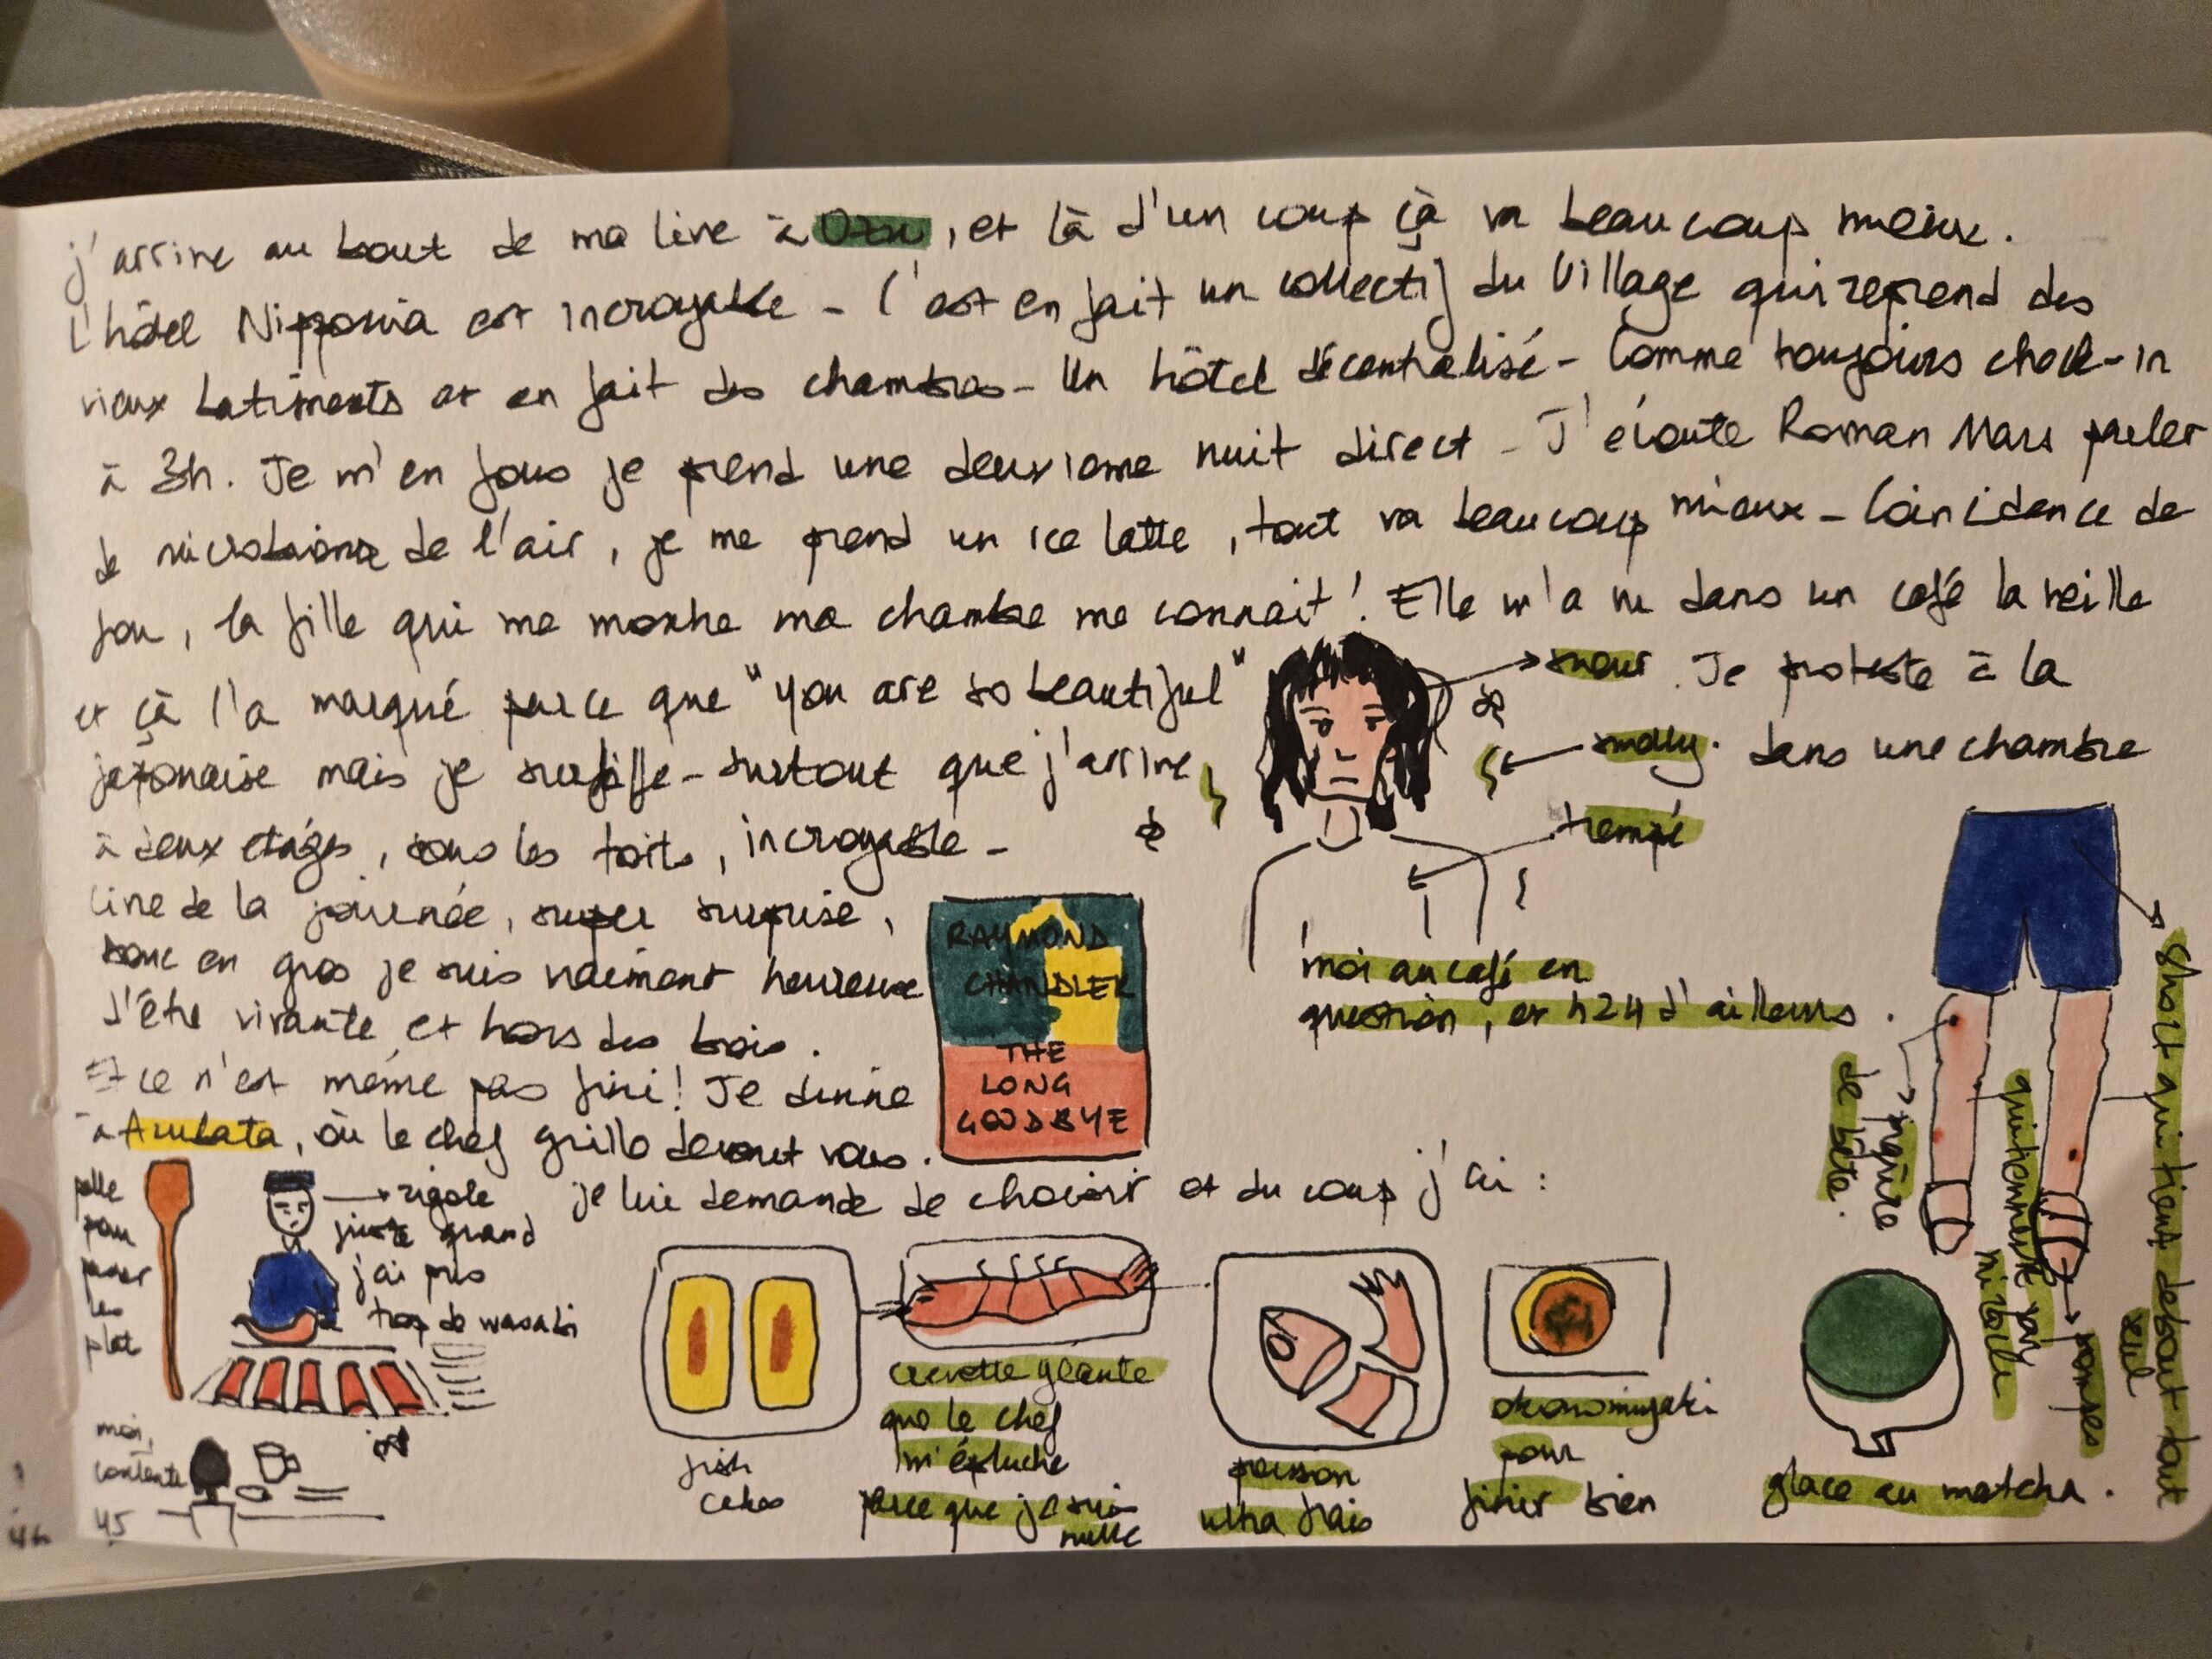 j'arrive au bout de ma live à Ozu, et là d'un coup çà va beaucoup mieux.
L'hôtel Nipponia est incroyable - C'est en fait un collectif du Village qui reprend des
vieux batiments et en fait des chambres - Un hôtel décentralisé - Comme toujours check-in
à 3h. Je m'en fous je prend une deuxieme nuit direct - J'écoute Roman Mars parler
de de l'air, je me prend un ice latte, tout va beaucoup mieux - Coincidence de
fou, la fille qui me montre ma chambre me connait! Elle m'a vu dans un café la veille
et çà l'a marqué parce que "you are so beautiful"
sueur. Je proteste à la
japonaise mais je surkiffe - surtout que j'arrive
smelly. dans une chambre
à deux etages, sous les toits, incroyable -
trempé
Livre de la journée, super surprise,
donc en gros je suis vraiment heureuse
d'être vivante et hors des bois.
Et ce n'est même pas fini! Je dinne
à Arukata, où le chef grille devant vous.
RAYMOND
CHANDLER
THE
LONG
GOODBYE
moi au café en
question, et h24 d'ailleurs.
short qui tient debout tout
seul
piqûre
de bête.
qui tiennent par
miracle
pompes
pelle
pour
poser
les
plat
rigole
juste quand
j'ai pris
trop de wasabi
je lui demande de choisir et du coup j'ai :
fish
cakes
crevette géante
que le chef
m'épluche
parce que je suis
nulle
poisson
ultra frais
okonomiyaki
pour
finir bien
glace au matcha.
moi,
contente
45
46